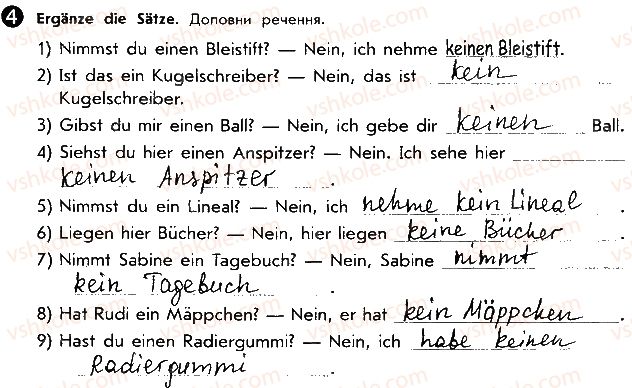 4 Ergänze die Sätze. Доповни речення.
1) Nimmst du einen Bleistift? — Nein, ich nehme keinen Bleistift.
2) Ist das ein Kugelschreiber? — Nein, das ist kein
Kugelschreiber.
3) Gibst du mir einen Ball? — Nein, ich gebe dir keinen Ball.
4) Siehst du hier einen Anspitzer? — Nein. Ich sehe hier
keinen Anspitzer .
5) Nimmst du ein Lineal? — Nein, ich nehme kein Lineal .
6) Liegen hier Bücher? — Nein, hier liegen keine Bücher .
7) Nimmt Sabine ein Tagebuch? — Nein, Sabine nimmt
kein Tagebuch .
8) Hat Rudi ein Mäppchen? — Nein, er hat kein Mäppchen .
9) Hast du einen Radiergummi? — Nein, ich habe keinen
Radiergummi .